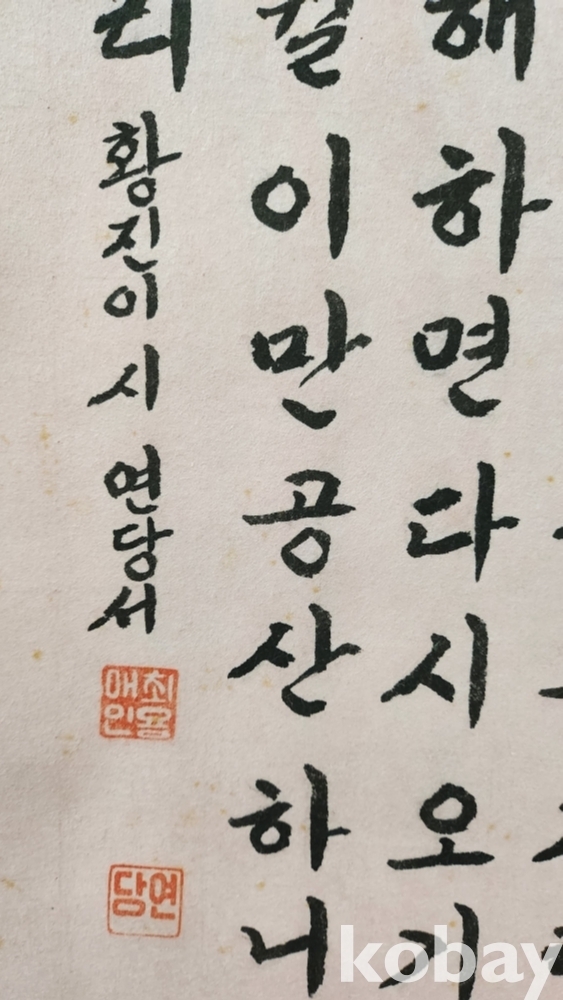 해하면다시오기
월이만공산하니
리
황진이 시 연당서
매인
연당
kobay